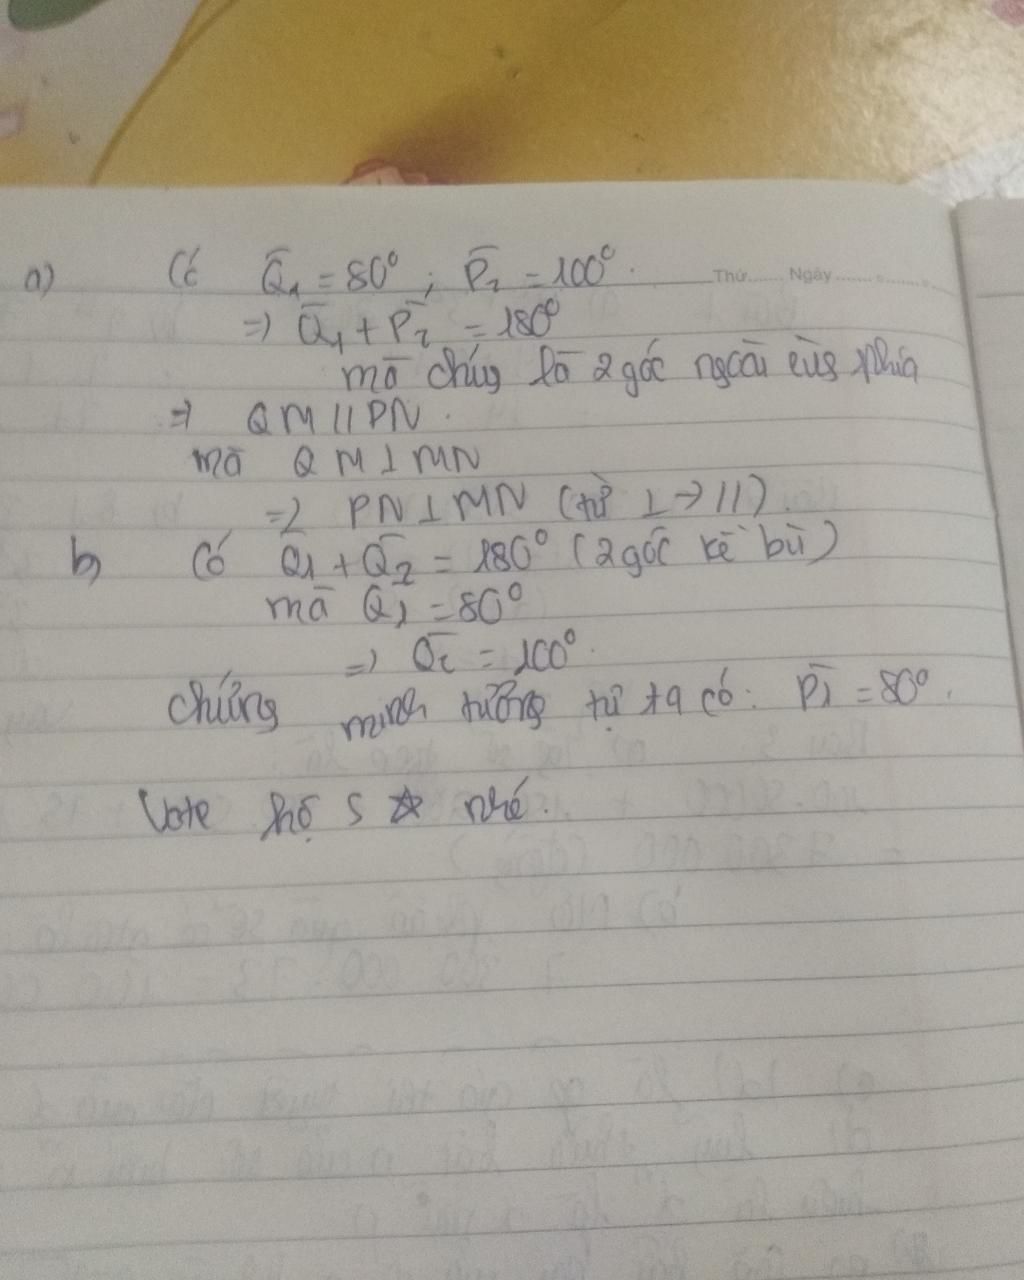 Thứ...... Ngày...........
a) Có Q̄₁ = 80° ; P̄₂ = 100°.
=> Q̄₁ + P̄₂ = 180°
mà chúng là 2 góc ngoài cùng phía
=> QM // PN.
mà QM ⊥ MN
=> PN ⊥ MN (từ ⊥ → //)
b) Có Q̄₁ + Q̄₂ = 180° (2 góc kề bù)
mà Q̄₁ = 80°
=> Q̄₂ = 100°.
chứng minh tương tự ta có: P̄₁ = 80°.
Vote hộ 5 ☆ nhé.